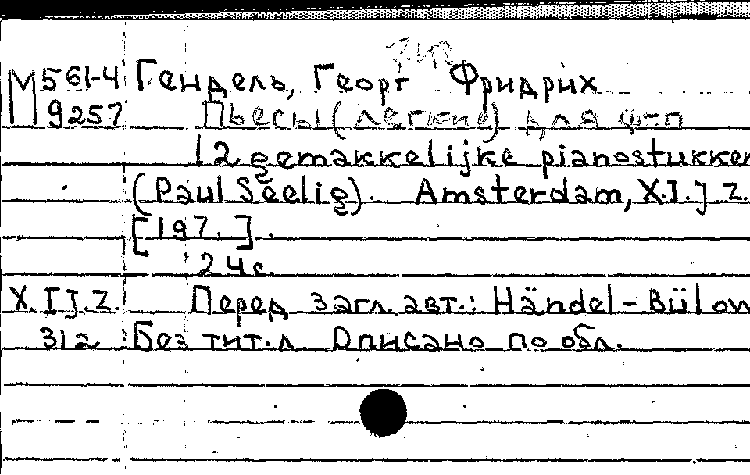 М 561-4 Гендель, Георг Фридрих
9257 Пьесы (легкие) для ф-п
12 gemakkelijke pianostukken
(Paul Seelig). Amsterdam, X.I.J.Z.
[197. ].
24с.
X.I.J.Z. Перед загл. авт.: Händel-Bülow
312 Без тит. л Описано по обл.